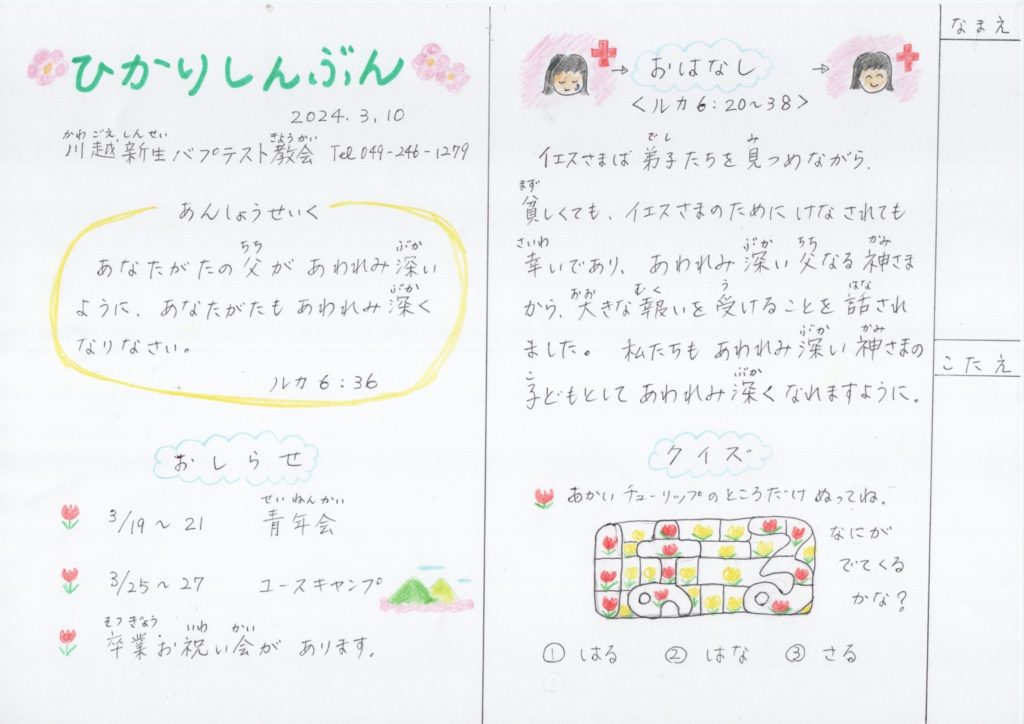 ひかりしんぶん
2024.3.10
かわ ごえ しん せい きょうかい
川越新生バプテスト教会 Tel 049-246-1279
あんしょうせいく
ちち ぶか
あなたがたの父があわれみ深い
ぶか
ように、あなたがたもあわれみ深く
なりなさい。
ルカ6:36
おしらせ
せい ねん かい
3/19～21 青年会
3/25～27 ユースキャンプ
そつ ぎょう いわ かい
卒業お祝い会が あります。
おはなし
<ルカ6:20～38>
でし み
イエスさまは 弟子たちを見つめながら、
まず
貧しくても、イエスさまのために けなされても
さいわ ぶか ちち かみ
幸いであり、あわれみ深い父なる神さま
おお むく う はな
から、大きな報いを受けることを話され
ぶか かみ
ました。 私たちもあわれみ深い神さまの
こ ぶか
子どもとして あわれみ深くなれますように。
クイズ
あかいチューリップのところだけ ぬってね。
なにが
でてくる
かな?
① はる ② はな ③ さる
なまえ
こたえ